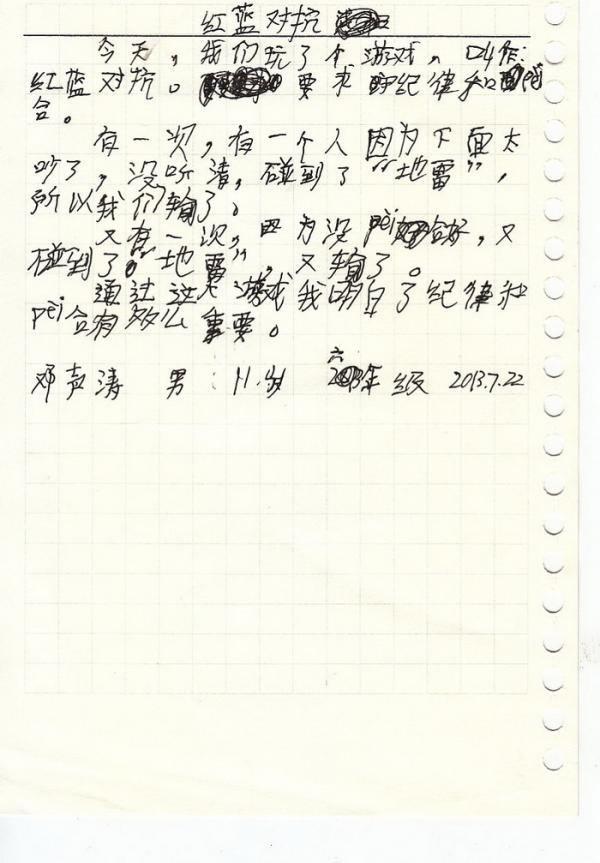 红蓝对抗
今天，我们玩了个游戏，叫作：
红蓝对抗。要求 纪律和pèi
合。
有一次，有一个人因为下面太
吵了，没听清，碰到了“地雷”，
所以我们输了。
又有一次，因为没pèi合好，又
碰到了“地雷”，又输了。
通过这个游戏我明白了纪律和
pèi合有多么重要。
邓声涛 男：11岁 六年级 2013.7.22